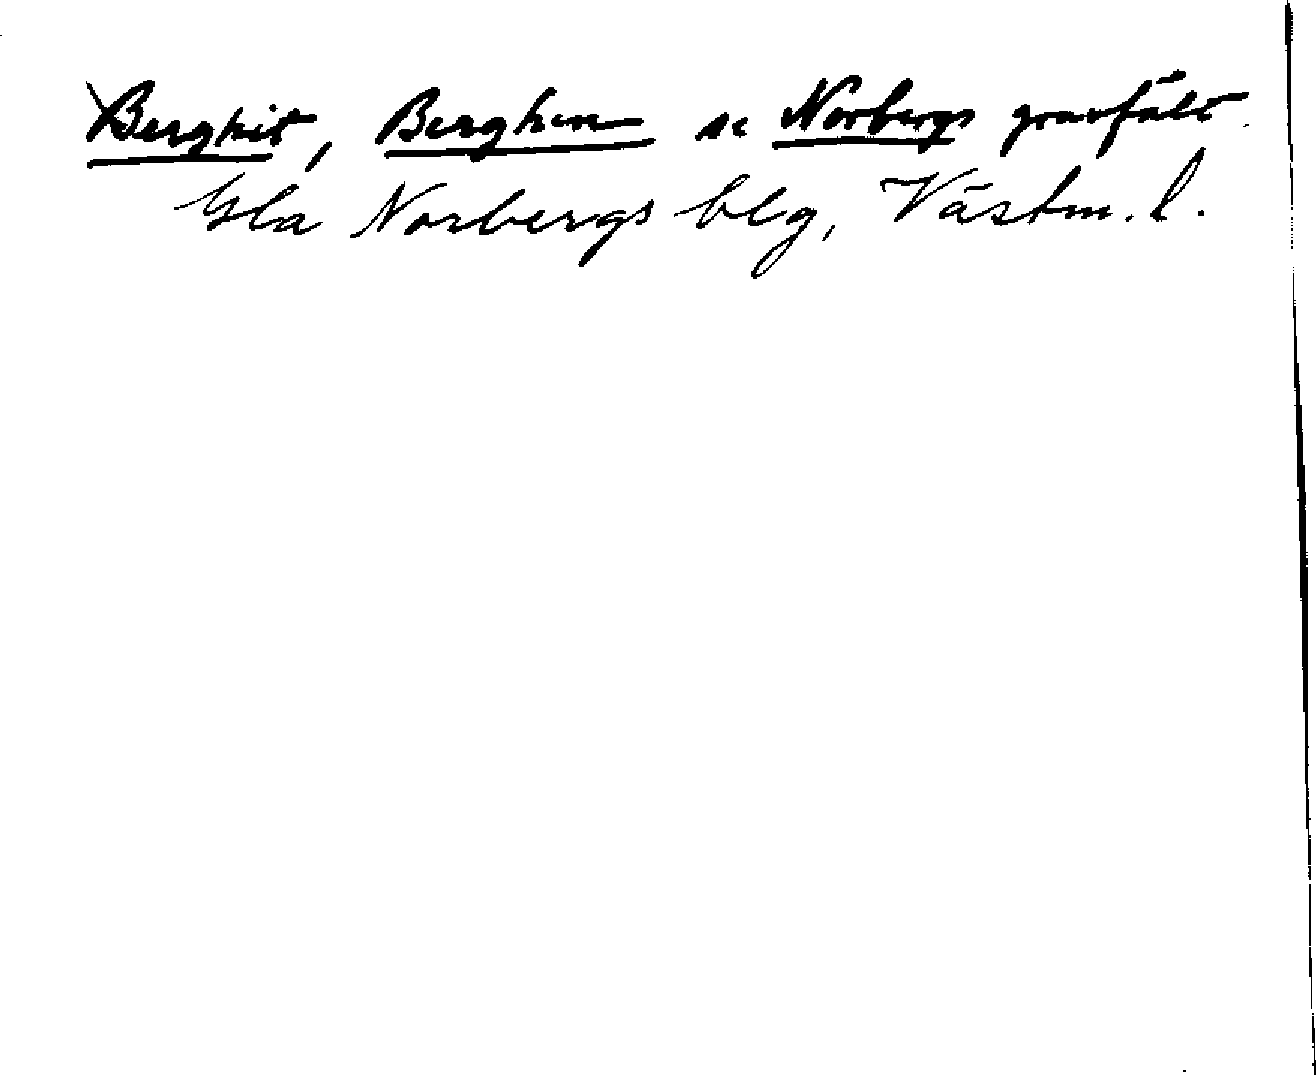 Berghit, Berghen se Norbergs gruvfält
Gla Norbergs blg, Västm. l.